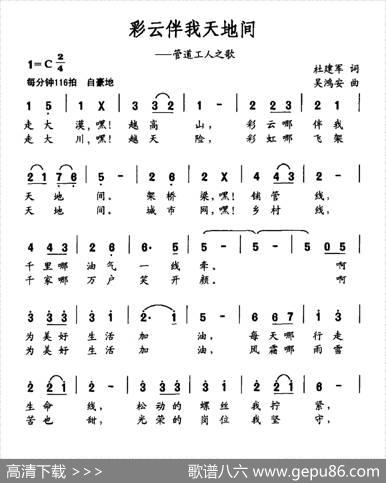 彩云伴我天地间
——管道工人之歌
1=C 2/4
杜建军 词
每分钟116拍 自豪地
吴鸿安 曲
1 5 | 1 X | 3 3 2 | 2 - | 1 2 | 1 6 |
走大漠,嘿! 越高山, 彩云哪伴我
走大川,嘿! 越天险, 彩虹哪飞架
2 1 7 6 | 5 - | 5 2 | 1 X | 4 4 3 | 2 - |
天地间。 架桥梁,嘿! 铺管线,
天地间。 城市网,嘿! 乡村线,
4 4 3 | 2 6 | 6· 5 | 5 - | 5 - | 5 0 5 |
千里哪油气一线牵。 啊
千家哪万户笑开颜。 啊
3 3 3 | 3 3 1 | 2· 1 | 5 - | 6 6 7 | 1 3 |
为美好生活加油, 每天哪行走
为美好生活加油, 风霜哪雨雪
2 2 1 | 2 - | 1 2 1 | 1 2 1 | 1 5 | 6 - |
生命线, 松动的螺丝我拧紧,
苦也甜, 光荣的岗位我坚守,
高清下载 >>>
歌谱八六 www.gepu86.com